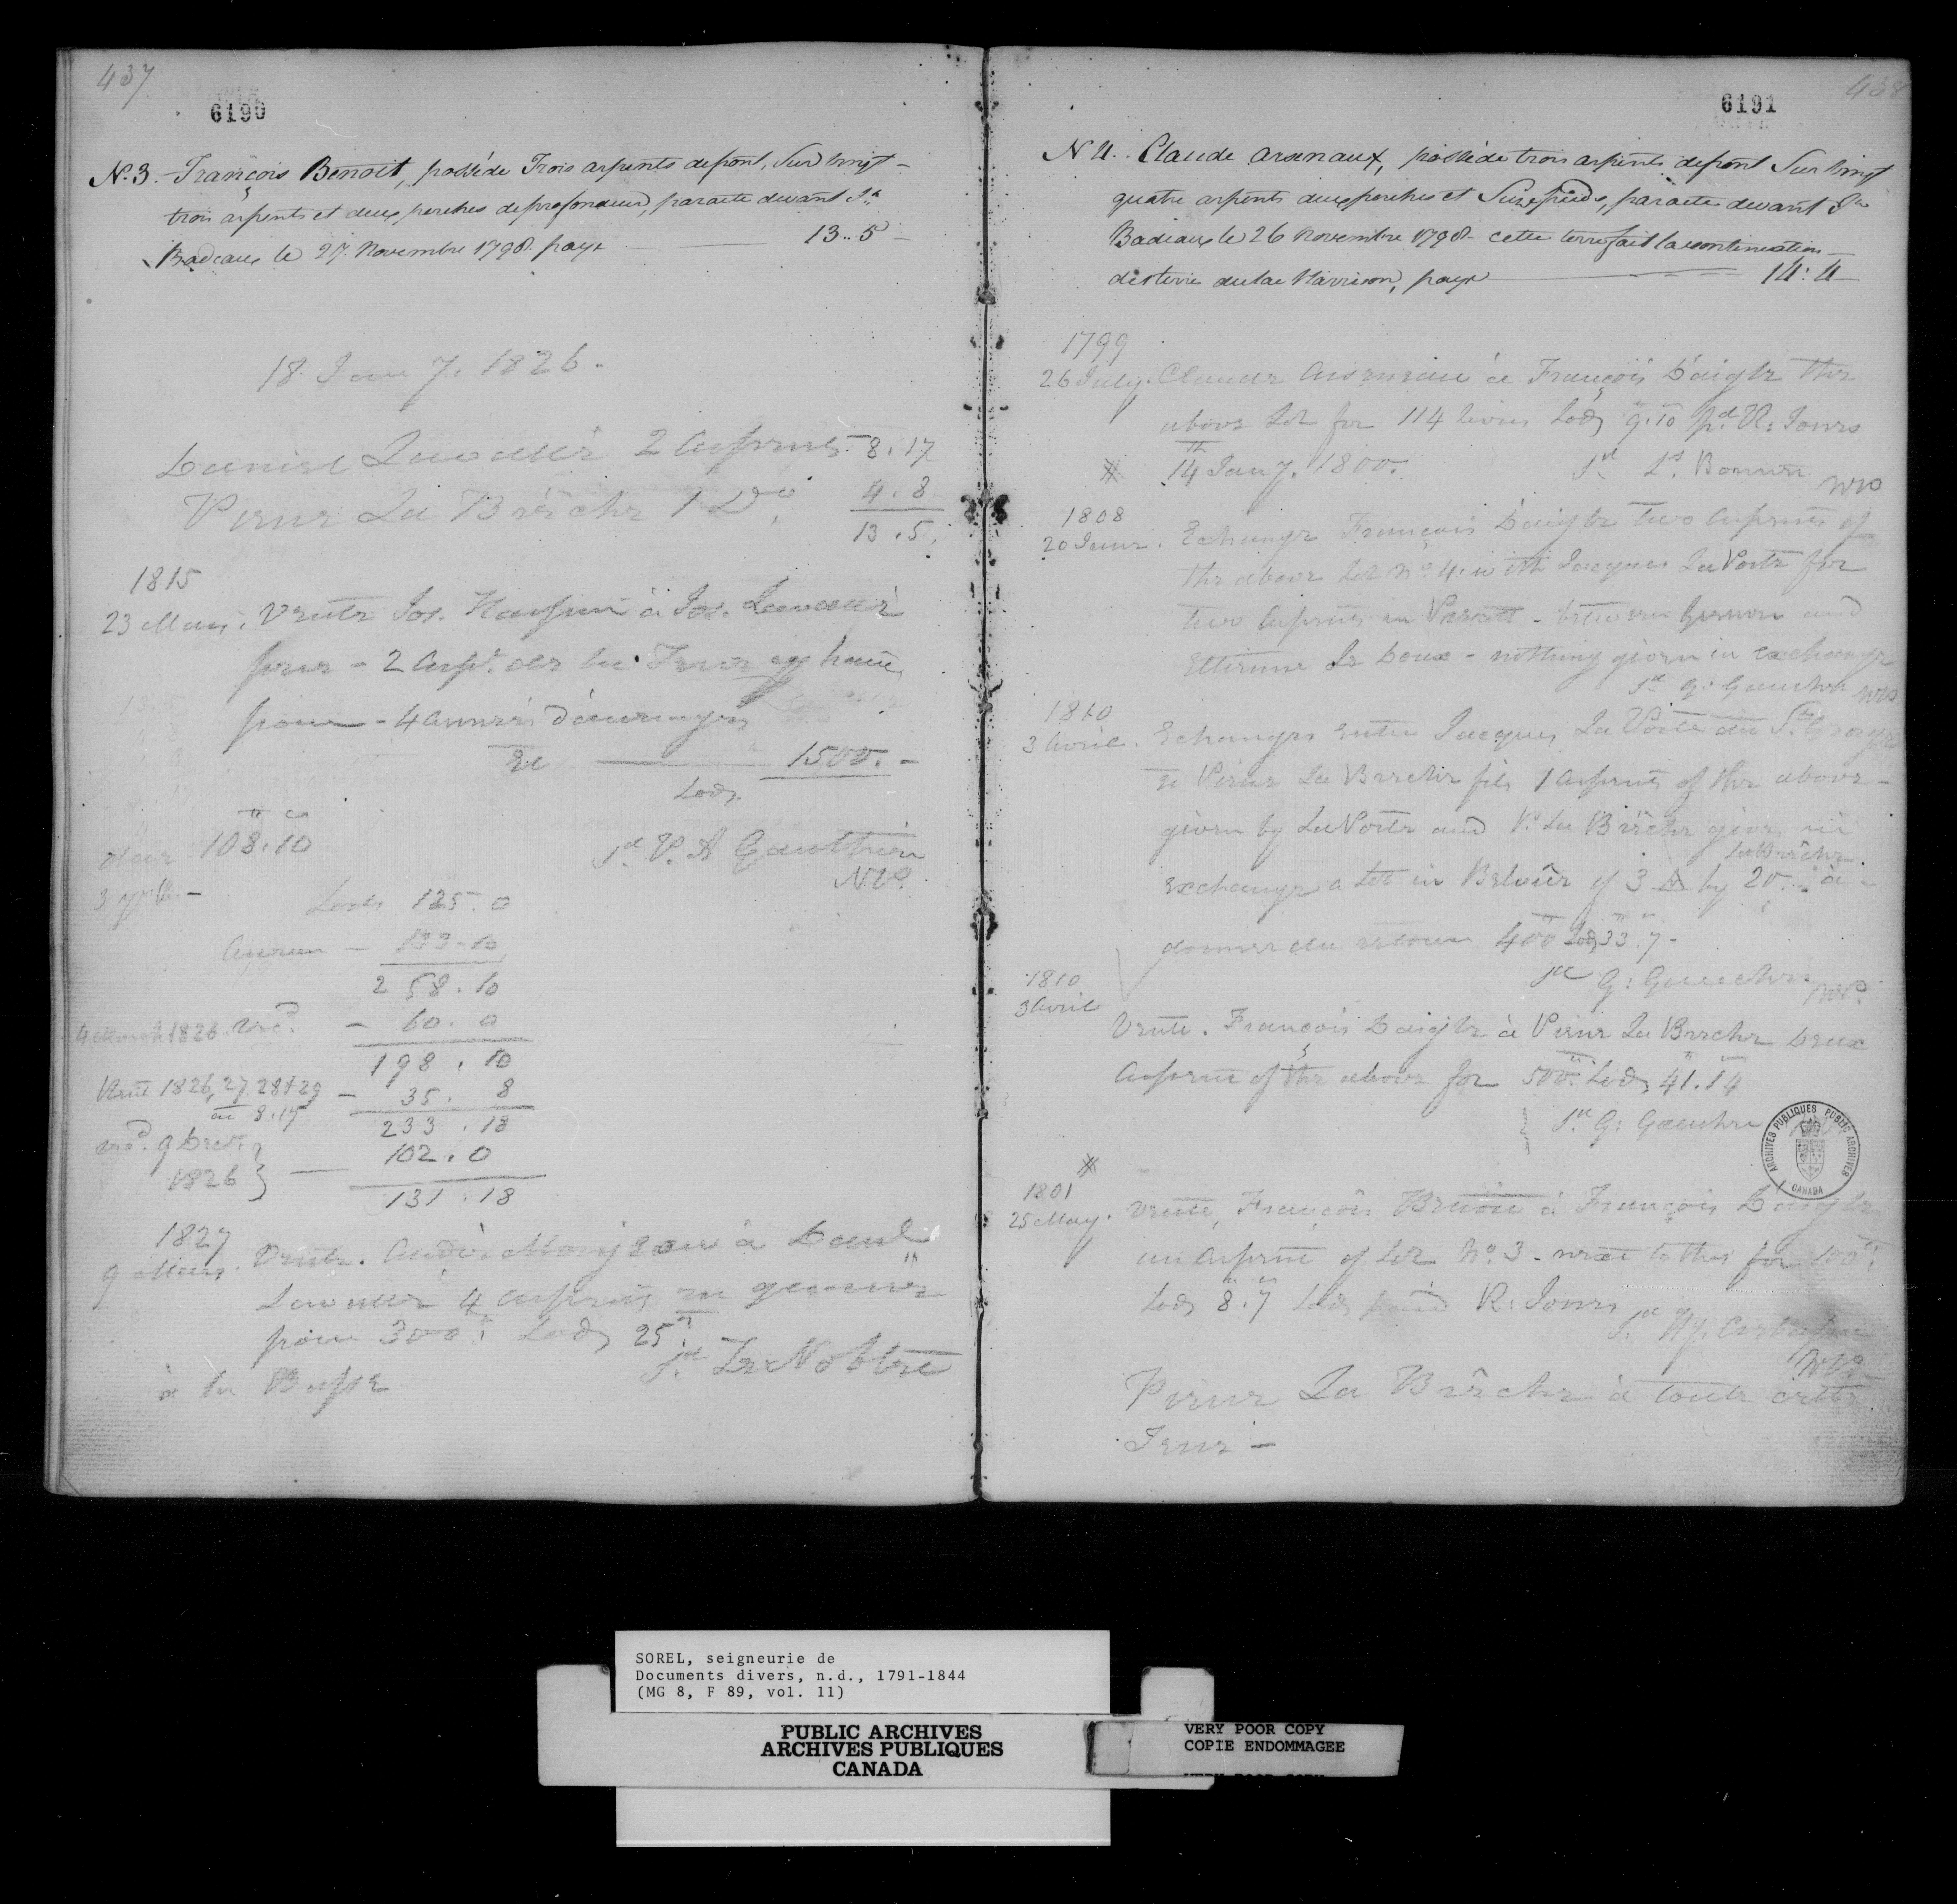 437
6190
N. 3. François Benoit, possède Trois arpents defront, Sur vingt-
trois arpents et deux perches deprofondeur, paracte devant Sr.
Badeaux le 27. Novembre 1798. paye 13..5
18 Jany. 1826.
Daniel Lavallé 2 Arpents 8.17
Pierre La Brêche 1 Do. 4.8
13.5.
1815
23 Mars. Vente Jos. à Jos. Lavallé
pour - 2 Arpt. de la Terre
pour - 4 Années d'arrerages
Et 1500.-
Lods
108.10
Sd. P. A Gauthier
N.P.
Lods 125.0
133.10
258.10
4 March 1826. recd. - 60.0
198.10
Rente 1826, 27. 28 & 29 - 35. 8
8.17
233.18
recd. 9 Decr. 102.0
1826
131.18
1827
9 Mars. Vente. André Mongeau à
Lavallé 4 Arpents
pour 300 Lods 25
Sd. Le Noblete
à la Baisse
438
6191
N 4.. Claude arsenaux, possède trois arpents defront Sur vingt
quatre arpents deux perches et Sixe pieds, paracte devant Sr
Badeaux le 26 Novembre 1798. cette terre fait la continuation
des terre du lac Harrison, paye 14:4
1799
26 July. Claude Arseneau à François Daigle the
above Lot for 114 livres Lods 9.10 pd. R: Jones
14 Jany. 1800. Sd Ls. Bonnin NP
1808
20 June. Echange François Daigle two Arpents of
the above Lot No. 4. with Jacques La Porte for
two Arpents in - between and
Ettienne Le Doux - nothing given in exchange
Sd G: Gauchr NP
1810
3 Avril. Echanges entre Jacques La Porte dit St. George
et Pierre La Breche fils 1 Arpents of the above -
given by LaPorte and P. La Brêche gives in
La Brêche
exchange a Lot in of 3 by 20.. à -
donner du retour 400 Lods 33.7-
Sd G: Gauchr
NP.
1810
3 Avril
Vente. François Daigle à Pierre La Breche Deux
Arpents of the above for 500. Lods 41.14
Sd. G: Gauchr
1801
25 May. Vente, François Benoit à François Daigle
un Arpent of Lot No. 3 - next to this for 100
Lods 8.7 Lods paid R: Jones
Sd.
NP.
Pierre La Brêche à toute cette
Terre -
ARCHIVES PUBLIQUES PUBLIC ARCHIVES
CANADA
SOREL, seigneurie de
Documents divers, n.d., 1791-1844
(MG 8, F 89, vol. 11)
PUBLIC ARCHIVES
ARCHIVES PUBLIQUES
CANADA
VERY POOR COPY
COPIE ENDOMMAGEE
VERY POOR COPY